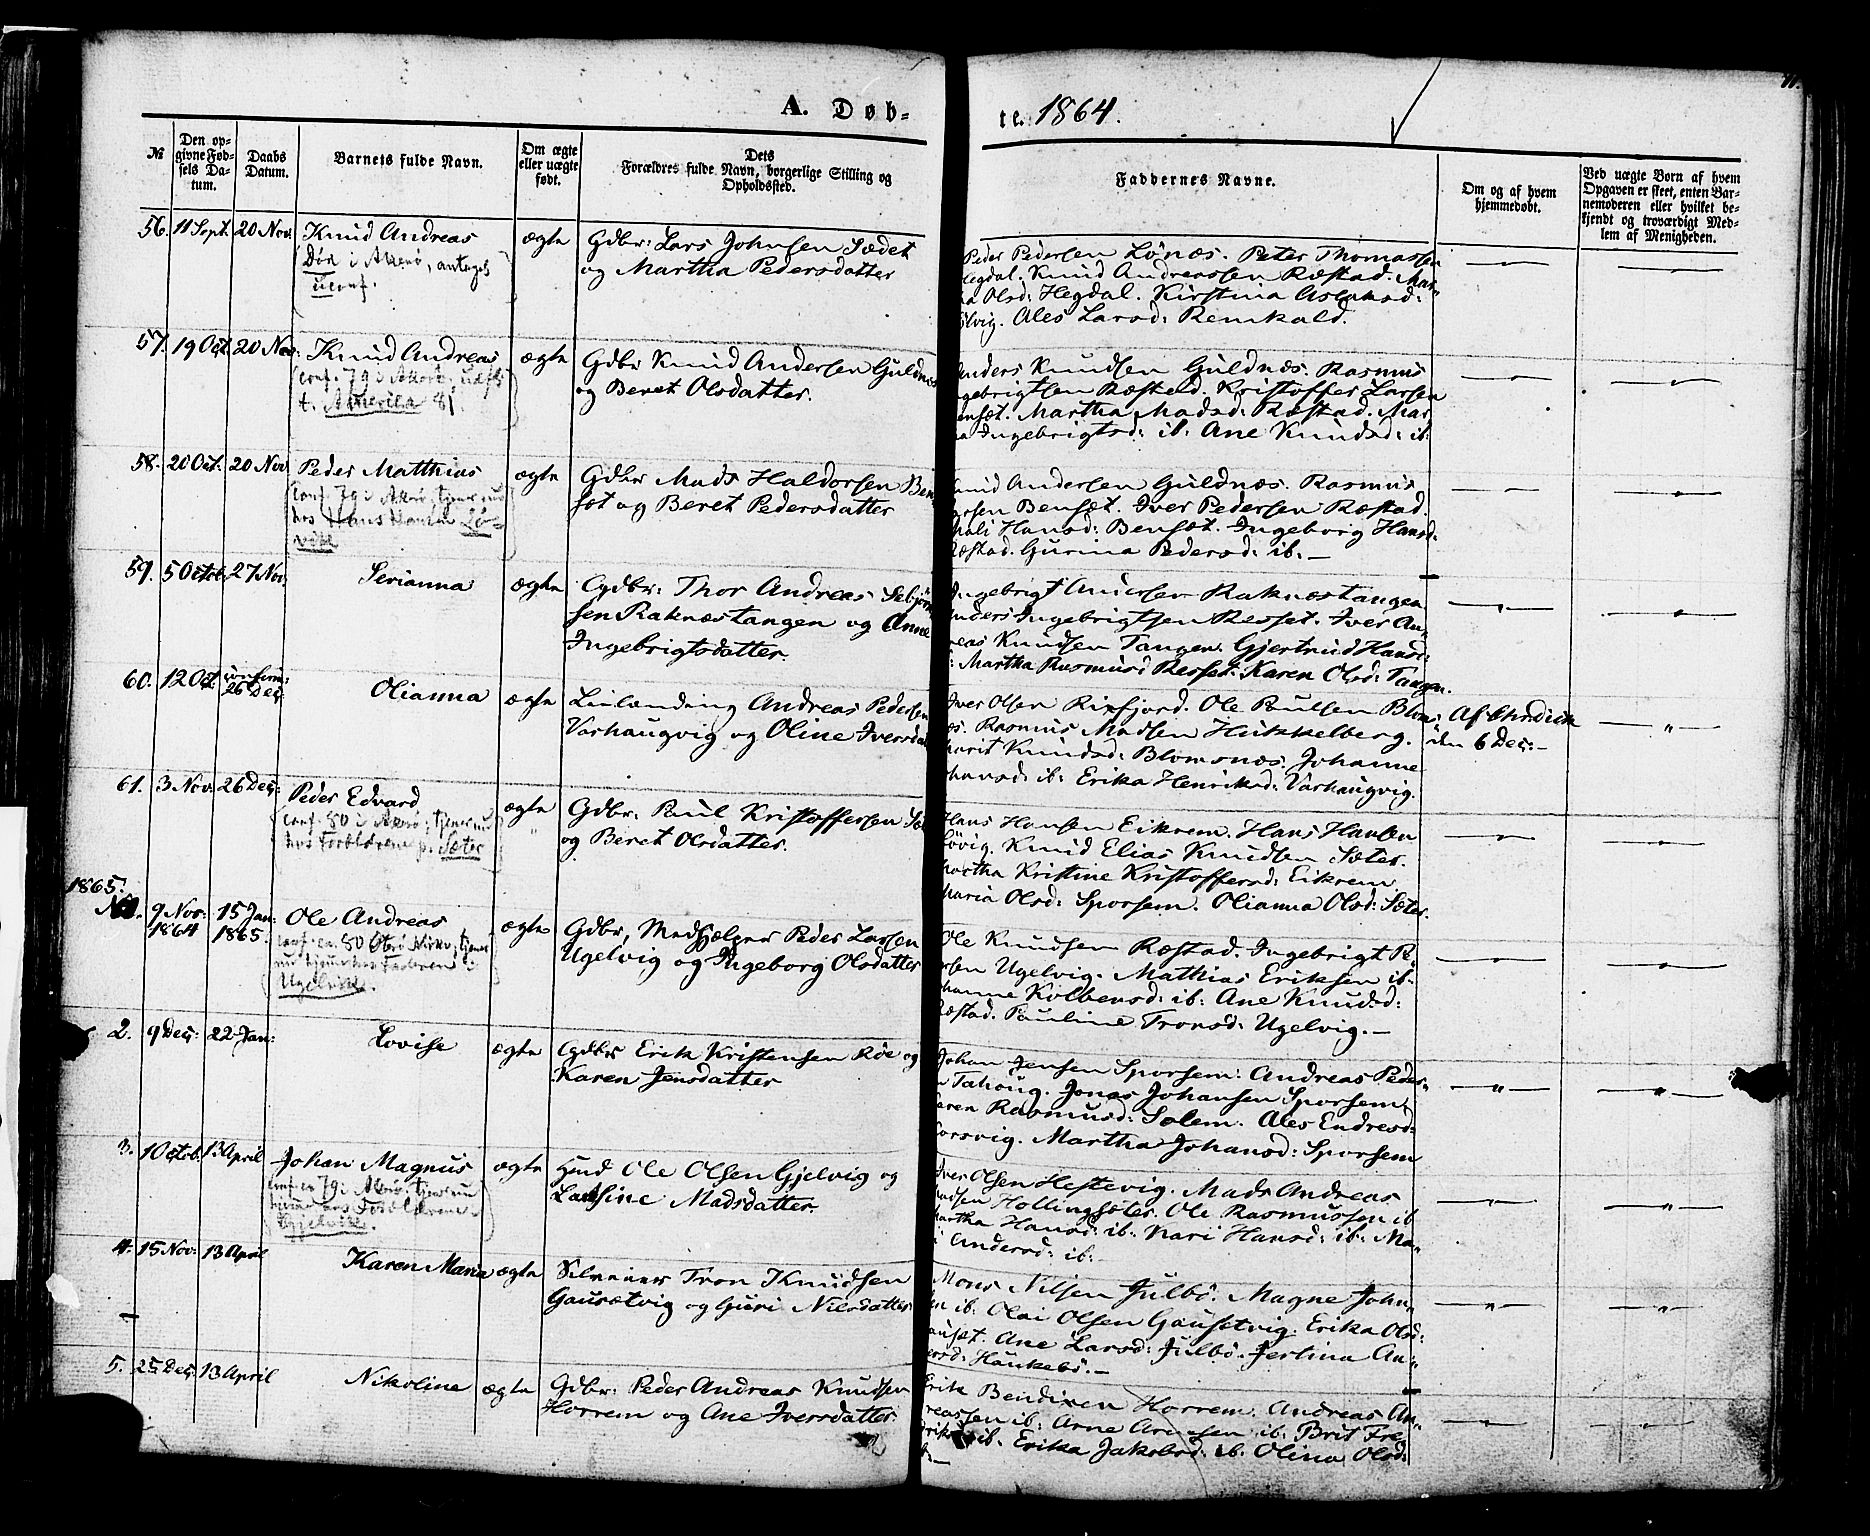 A. Døb-
te. 1864.
№
Den opgivne Fødsels Datum.
Daabs Datum.
Barnets fulde Navn.
Om ægte eller uægte født.
Dets Forældres fulde Navn, borgerlige Stilling og Opholdssted.
Faddernes Navne.
Om og af hvem hjemmedøbt.
Ved uægte Born af hvem Opgaven er skeet, enten Barnemoderen eller hvilket bekjendt og troværdigt Medlem af Menigheden.
56. 11 Sept. 20 Nov. Knud Andreas ægte Gdbr: Lars Johnsen Sædet
Død i Akerø, antagel
uconf.
og Martha Pedersdatter
Peder Pedersen Lönæs. Peter Thomassen
Hegdal. Knud Andreassen Ræstad. Mar-
Olsd: Hegdal. Kirstina Aslaksd:
Ales Larsd: Remkald.
57. 19 Oct. 20 Nov. Knud Andreas ægte Gdbr Knud Andersen Guldnæs
conf. 79 i Akerö, udfl
t. Amerika 81.
og Beret Olsdatter.
Anders Knudsen Guldnæs. Rasmus
Ingebrigtsen Ræstad. Kristoffer Larsen
Bensæt. Martha Madsd: Ræstad. Mar
Ingebrigtsd: ib: Ane Knudsd: ib:
58. 20 Oct. 20 Nov. Peder Matthias ægte Gdbr Mads Haldorsen Ben
conf. 79 i Akerö, tjener nu
hos Hans Hansen Lö-
vik
sæt og Beret Pedersdatter
Knud Andersen Guldnæs. Rasmus
Bensæt. Iver Pedersen Ræstad.
Hansd: Bensæt. Ingeborg Hansd:
Ræstad. Gurina Pedersd: ib:—
59. 5 Octob. 27 Nov. Serianna ægte Gdbr: Thor Andreas Sebjörn
sen Raknæstangen og Anne
Ingebrigtsdatter
Ingebrigt Andersen Raknæstangen
Anders Ingebrigtsen Resset. Iver An-
dreas Knudsen Tangen. Gjertrud Hansd:
Martha Rasmusd Resset. Karen Olsd: Tangen.
60. 12 Oct. 26 Dec. Olianna ægte Andreas Pedersen
Varhaugvig og Oline Iversdat
Iver Olsen Rixfjord. Ole Paulsen Blom-
næs. Rasmus Madsen Heikkelberg.
Marit Knudsd: Blomsnæs. Johanne
Hansd: ib: Erika Henriksd: Varhaugvig.
Af
den 6 Dec:—
61. 3 Nov. 26 Dec: Peder Edvard ægte Gdbr: Paul Kristoffersen Sæ
conf. 80 i Akerö, tjener nu
hos Forældrene p. Sæter
og Beret Olsdatter.
Hans Hansen Eikrem. Hans Hansen
Lövig. Knud Elias Knudsen Sæter.
Martha Kristine Kristoffersd: Eikrem
Maria Olsd: Sporsem. Olianna Olsd: Sæter.
1865.
9 Nov: 1864 15 Jan: 1865. Ole Andreas ægte Gdbr, Medhjælper Peder Larsen
Ugelvig og Ingeborg Olsdatter
Ugelvik.
Ole Knudsen Ræstad. Ingebrigt Pe-
dersen Ugelvig. Mathias Eriksen ib:
Kolbensd: ib: Ane Knudsd:
Ræstad. Pauline Tronsd: Ugelvig.—
2. 9 Dec: 22 Jan: Lovise ægte Gdbr Erik Kristensen Röe og
Karen Jensdatter
Johan Jensen Sporsem: Andreas Peder-
Tahoug. Jonas Johansen Sporsem
Karen Rasmusd: Solem. Ales Endresd:
Korsvig. Martha Johansd: Sporsem
3. 1 Octob. 13 April Johan Magnus ægte Hmd Ole Olsen Gjelvig og
Larsine Madsdatter.
Gjelvik.
Iver Olsen Hestevig. Mads Andreas
Madsen Hollingsæter. Ole Rasmussen ib
Martha Hansd: ib: Kari Hansd: ib: Ma-
Andersd: ib:
4. 15 Nov: 13 April Karen Maria ægte Tron Knudsen
Gausætvig og Guri Nilsdatter
Mons Nilsen Julbö. Magne John-
sen ib: Olai Olsen Gausetvig. Erika Olsd:
Gauset. Ane Larsd: Julbö. Jertina An-
dersd: Haukebö.—
5. 25 Dec: 13 April Nikoline ægte Gdbr: Peder Andreas Knudsen
Horrem og Ane Iversdatter
Erik Bendixen Horrem. Andreas An-
dreassen ib: Arne Arnesen ib: Brit Fre
driksd ib. Erika Jakobsd: ib. Olina Olsd: